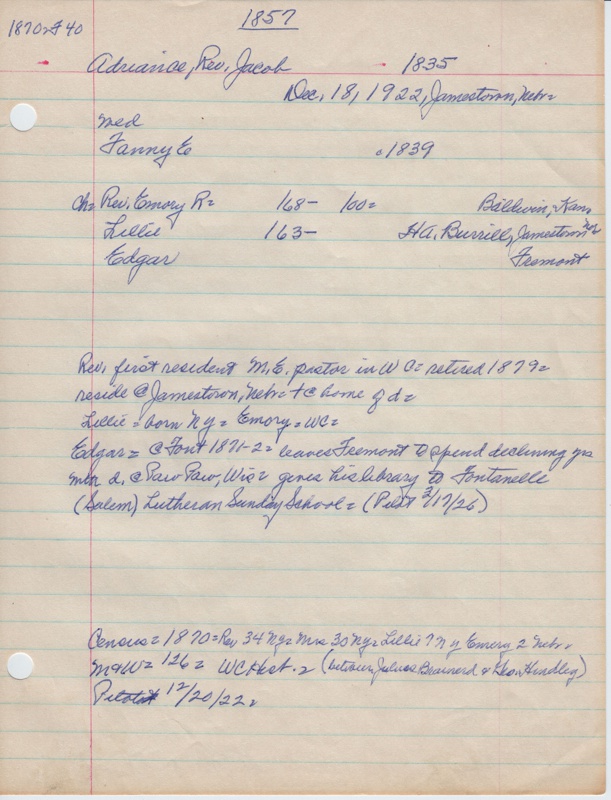 1857
1870 # 40
Adriance, Rev. Jacob 1835
Dec. 18, 1922, Jamestown, Nebr=
med
Fanny E c 1839
ch= Rev. Emory R= 168- 100= Baldwin, Kans
Lillie 163- H.A. Burrill, Jamestown Nebr
Edgar Fremont
Rev. first resident M.E. pastor in WC= retired 1879=
reside @ Jamestown, Nebr= + @ home of d=
Lillie = born NY = Emory = WC=
Edgar = @ Font 1871-2 = leaves Fremont to spend declining yrs
with d. @ Paw Paw, Wis= gives his library to Fontanelle
(Salem) Lutheran Sunday School = (Pilot 2/17/26)
Census = 1870 = Rev 34 NY= Mrs 30 NY= Lillie 7 NY Emory 2 Nebr=
M+W= 126 = WC Hist. 2 (between Julius Brainerd & Geo. Hindley)
Pilot 12/20/22=